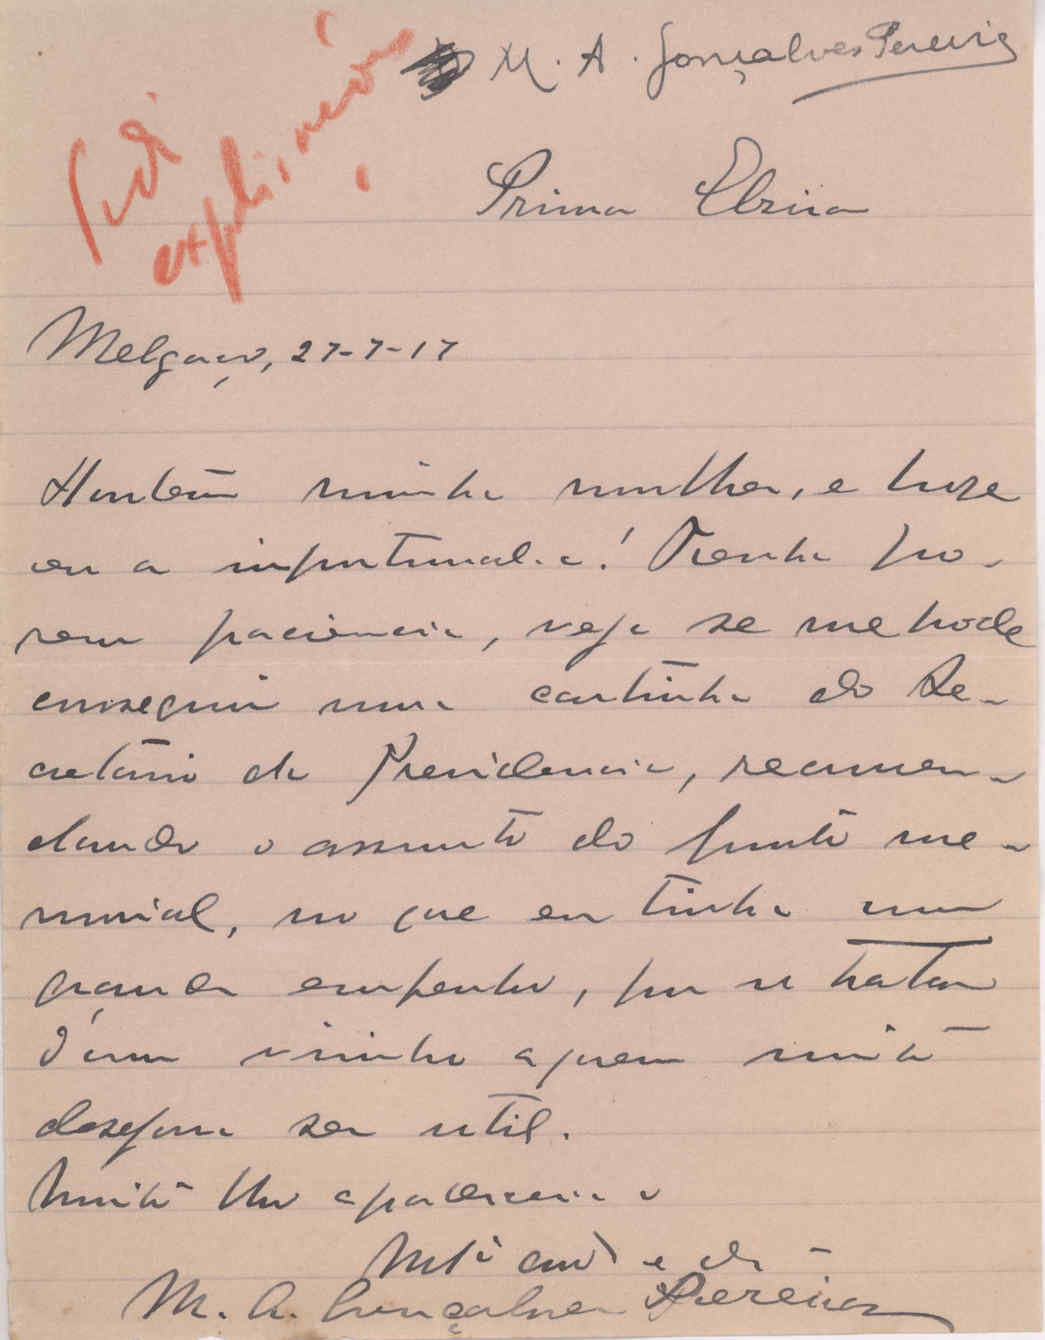 M. A. Gonçalves Pereira
Pedi
explicações
Prima Elzira
Melgaço, 27-7-17
Hontem minha mulher, e hoje
eu a importunal-a! Tenha po-
rem paciencia, veja se me pode
conseguir uma cartinha do Se-
cretário da Presidencia, recomen-
dando o assunto do junto me-
morial, no que eu tinha um
grande empenho, por se tratar
d'um visinho a quem muito
desejava ser util.
Muito lhe agradecera o
M. A. Gonçalves Pereira